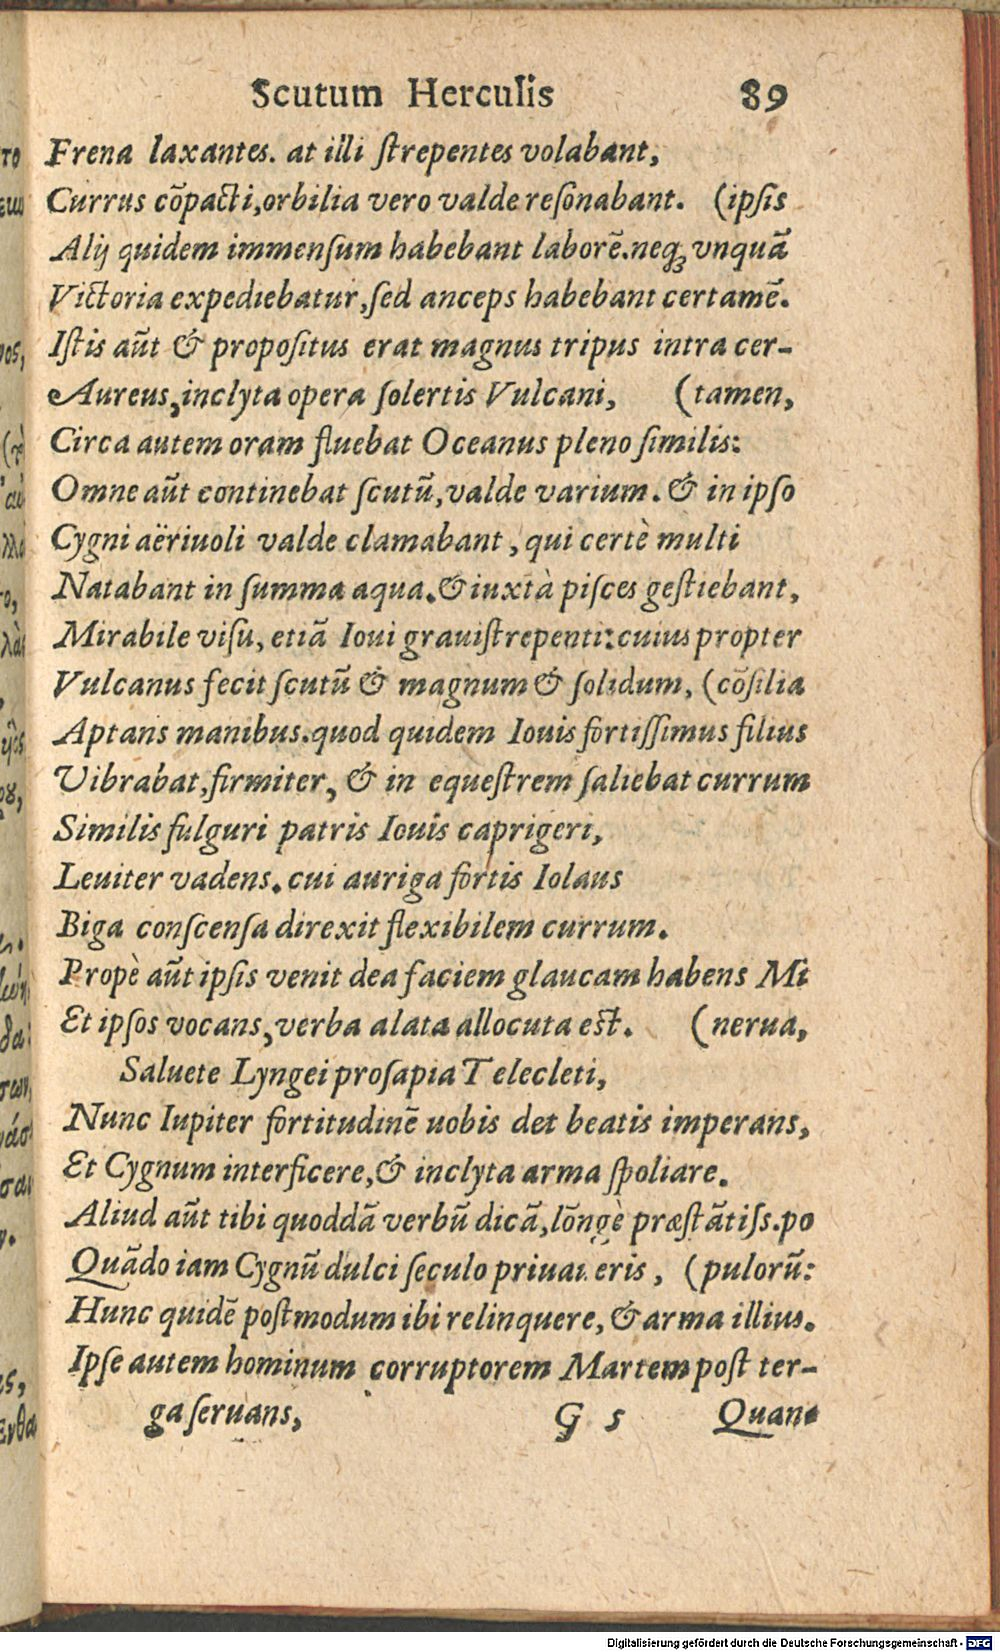 Scutum Herculis 89
Frena laxantes. at illi ſtrepentes volabant,
Currus cōpacti,orbilia vero valde reſonabant. (ipſis
Alij quidem immenſum habebant laborē.neqꝫ vnquā
Victoria expediebatur,ſed anceps habebant certamē.
Iſtis aūt & propoſitus erat magnus tripus intra cer-
Aureus,inclyta opera ſolertis Vulcani, (tamen,
Circa autem oram fluebat Oceanus pleno ſimilis:
Omne aūt continebat ſcutū,valde varium. & in ipſo
Cygni aëriuoli valde clamabant, qui certè multi
Natabant in ſumma aqua.& iuxtà piſces geſtiebant,
Mirabile viſu, etiā Ioui grauiſtrepenti:cuius propter
Vulcanus fecit ſcutū & magnum & ſolidum, (cōſilia
Aptans manibus.quod quidem Iouis fortiſſimus filius
Vibrabat,firmiter, & in equeſtrem ſaliebat currum
Similis fulguri patris Iouis caprigeri,
Leuiter vadens. cui auriga fortis Iolaus
Biga conſcenſa direxit flexibilem currum.
Propè aūt ipſis venit dea faciem glaucam habens Mi
Et ipſos vocans,verba alata allocuta eſt. (nerua,
Saluete Lyngei proſapia Telecleti,
Nunc Iupiter fortitudinē uobis det beatis imperans,
Et Cygnum interficere,& inclyta arma ſpoliare.
Aliud aūt tibi quoddā verbū dicā,lōngè præſtātiſs.po
Quādo iam Cygnū dulci ſeculo priuaueris, (pulorū:
Hunc quidē poſtmodum ibi relinquere, & arma illius.
Ipſe autem hominum corruptorem Martem poſt ter-
ga ſeruans, G 5 Quan-
Digitalisierung gefördert durch die Deutsche Forschungsgemeinschaft - DFG